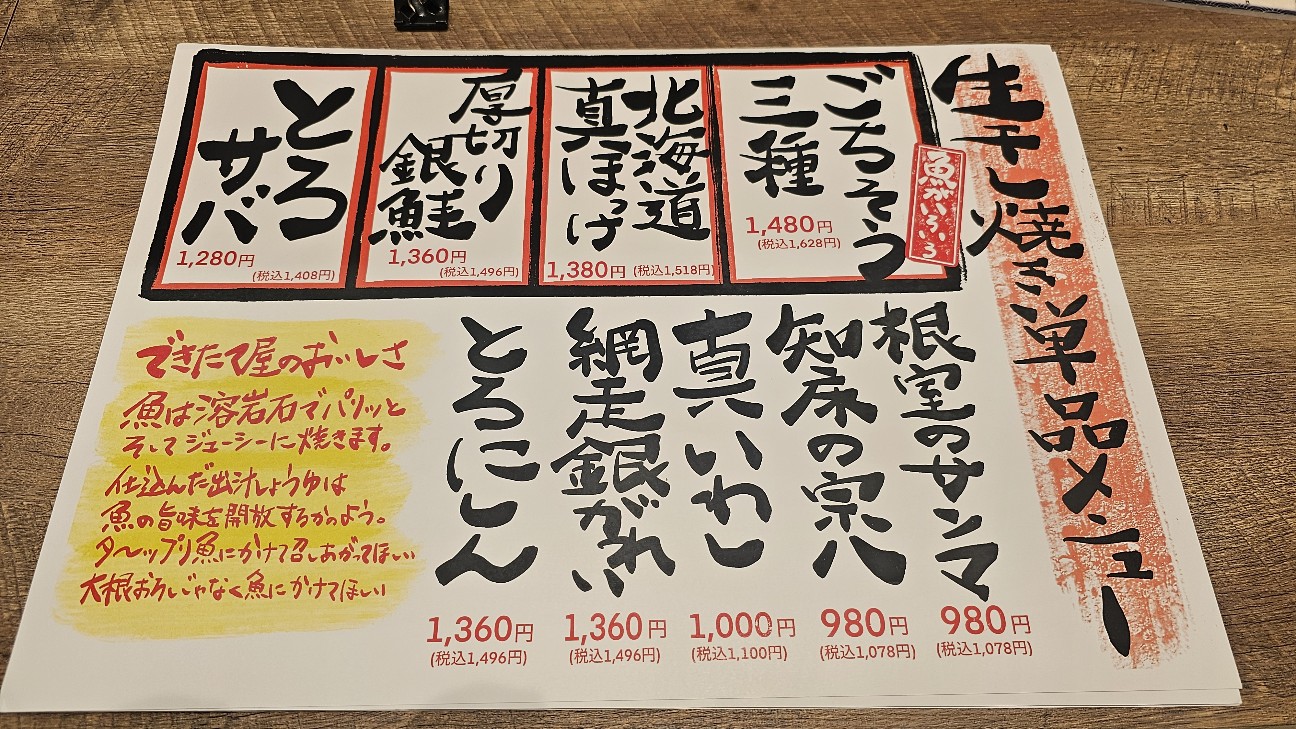 生干し焼き単品メニュー
ごちそう
三種
魚がいろいろ
1,480円
(税込1,628円)
北海道
真ほっけ
1,380円 (税込1,518円)
厚切り
銀鮭
1,360円
(税込1,496円)
とろ
サバ
1,280円
(税込1,408円)
根室のサンマ
980円
(税込1,078円)
知床の宗八
980円
(税込1,078円)
真いわし
1,000円
(税込1,100円)
網走銀がれい
1,360円
(税込1,496円)
とろにしん
1,360円
(税込1,496円)
できたて屋のおいしさ
魚は溶岩石でパリッと
そしてジューシーに焼きます。
仕込んだ出汁しょうゆは
魚の旨味を開放するかつよう。
タ〜ップリ魚にかけて召しあがってほしい
大根おろしじゃなく魚にかけてほしい